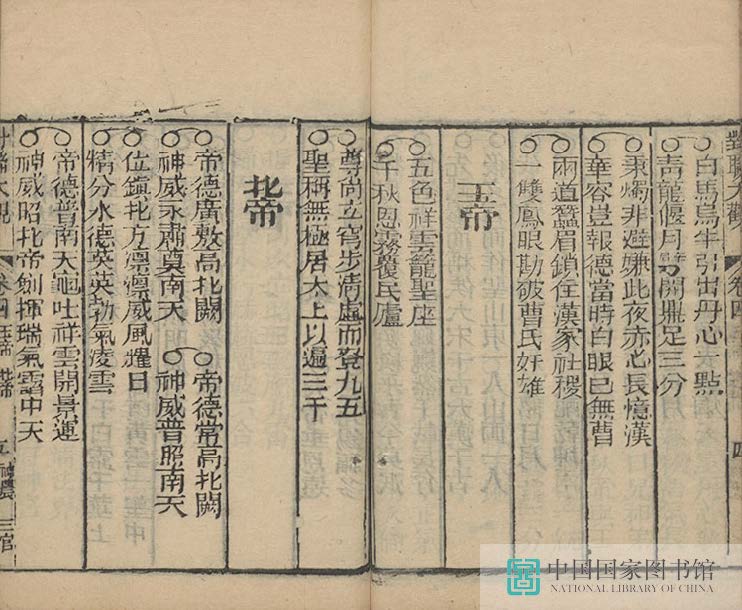 對聯大觀 卷四 四
白馬烏牛引出丹心一點
青龍偃月開鼎足三分
秉燭非避嫌此夜赤心長憶漢
華容豈報德當時白眼已無曹
兩道蠶眉鎖住漢家社稷
一雙鳳眼勘破曹氏奸雄
玉帝
五色祥雲籠聖座
千秋恩霧覆民廬
尊尚立穹步清虛而登九五
聖稱無極居太上以遍三千
北帝
帝德廣敷高北闕 帝德常高北闕
神威永肅奠南天 神威普照南天
位鎮北方凛凛威風耀日
精分水德英英勁氣凌雲
帝德普南天龜吐祥雲開景運
神威昭北帝劍揮瑞氣靄中天
對聯大觀 卷四 玉帝 北帝 五 神農 三官
中国国家图书馆
NATIONAL LIBRARY OF CHINA